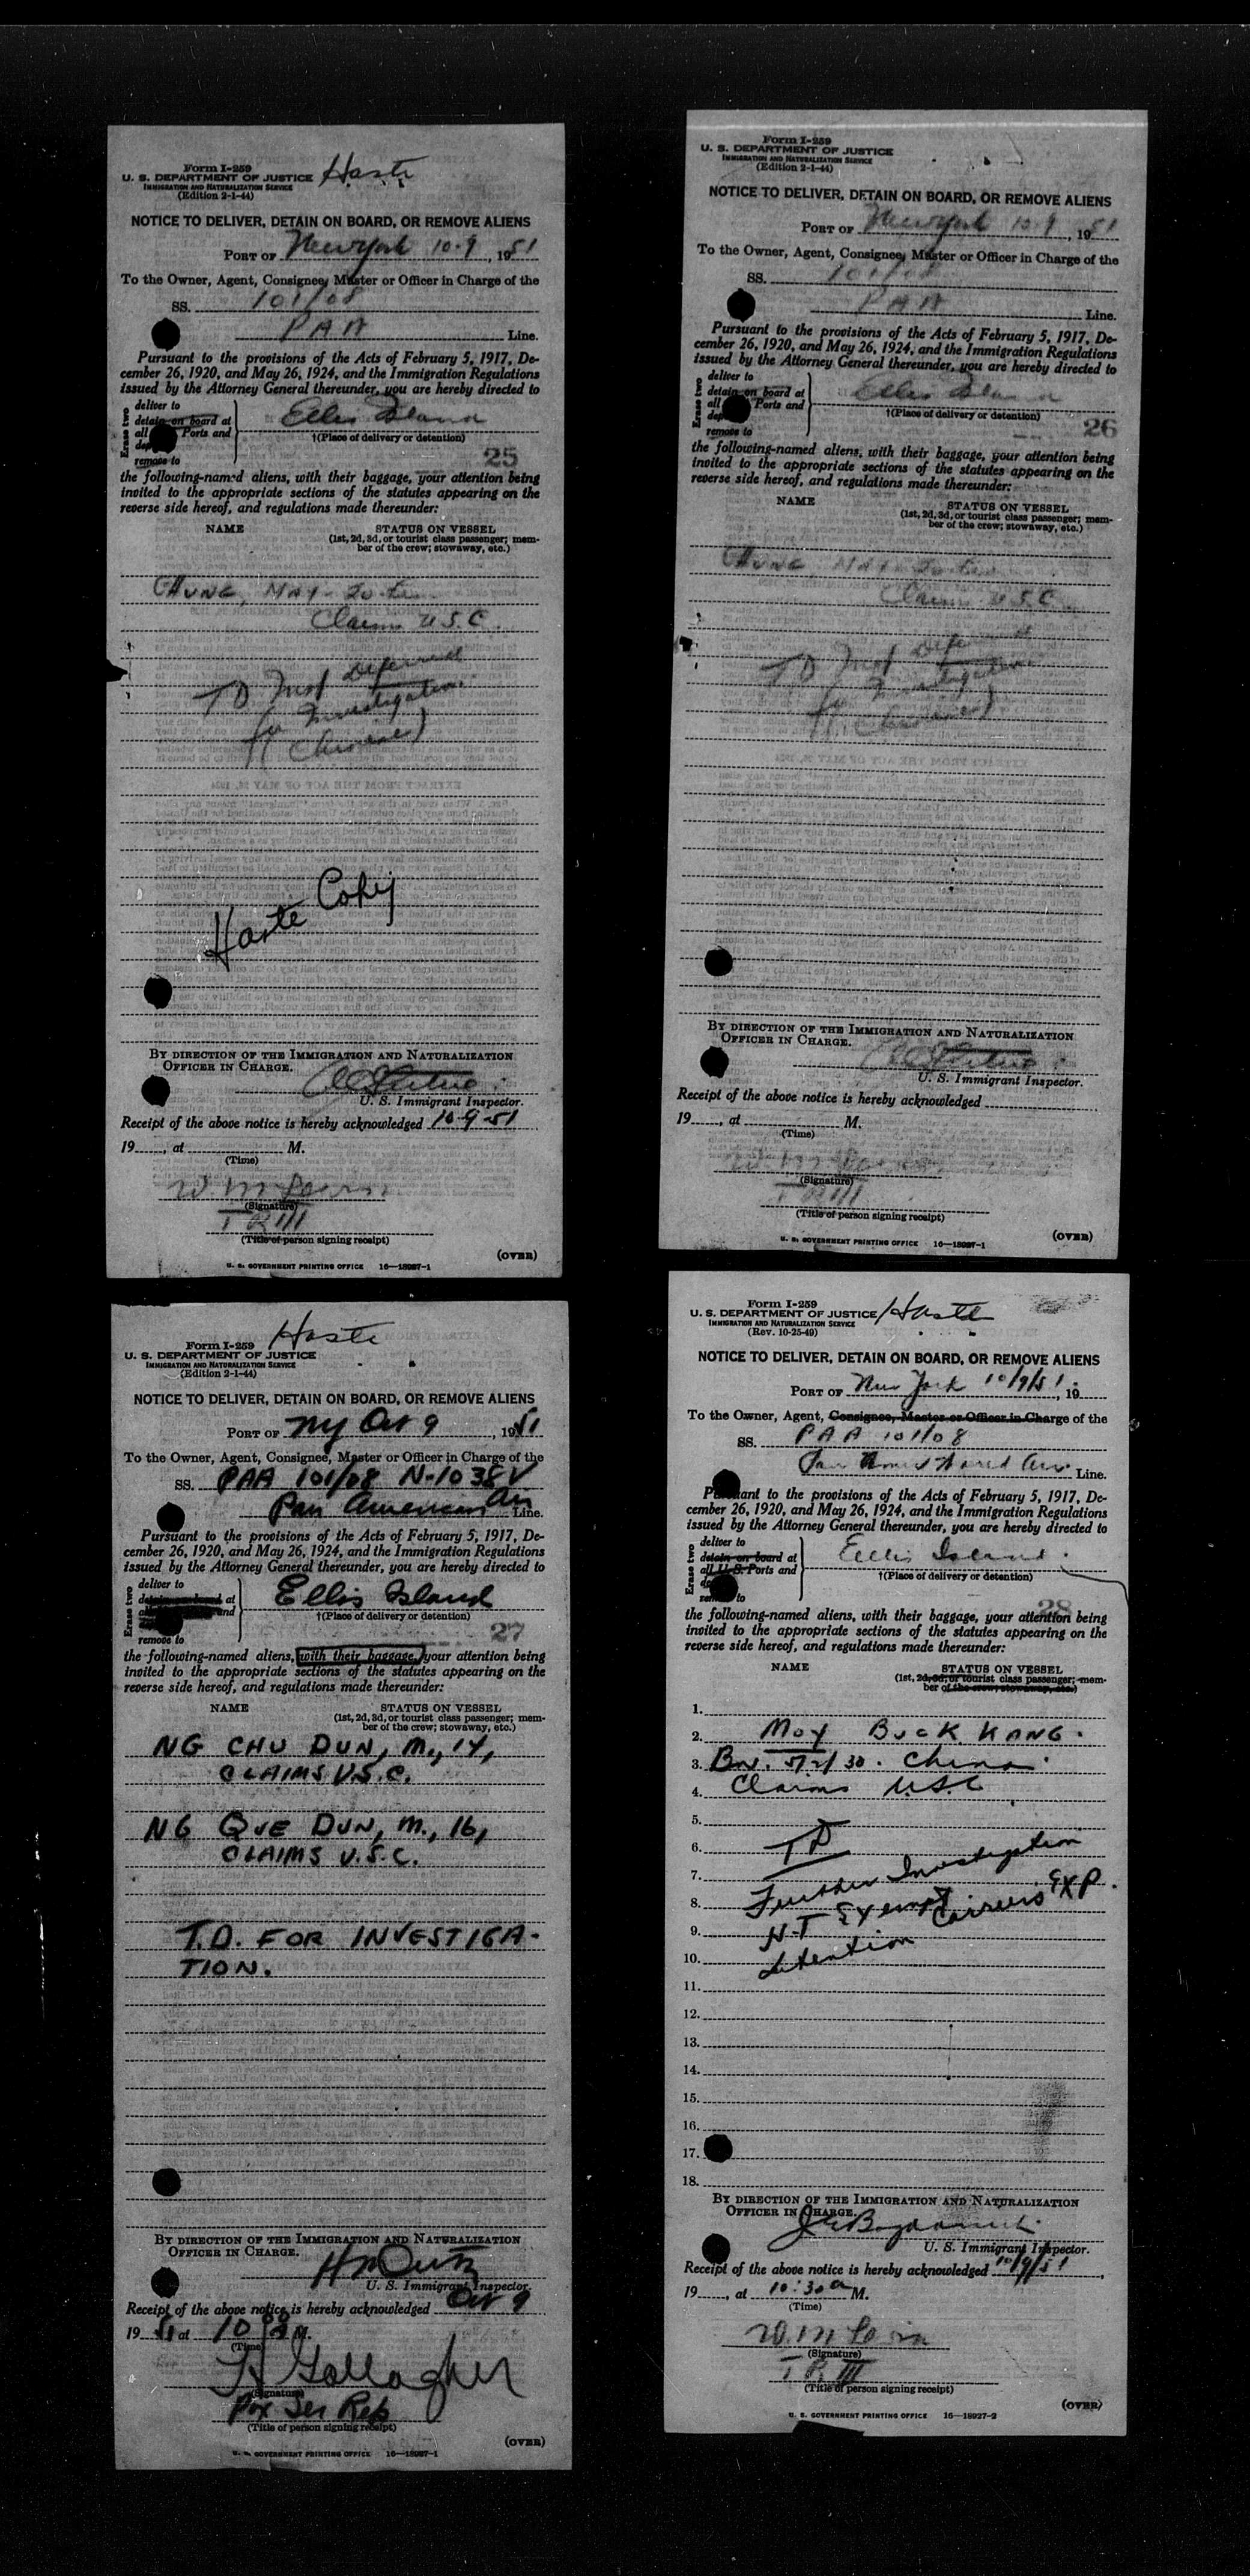 Form I-259
U. S. DEPARTMENT OF JUSTICE Haste
IMMIGRATION AND NATURALIZATION SERVICE
(Edition 2-1-44)
NOTICE TO DELIVER, DETAIN ON BOARD, OR REMOVE ALIENS
PORT OF New York 10-9, 1951
To the Owner, Agent, Consignee, Master or Officer in Charge of the
SS. 101/08
PAA Line.
Pursuant to the provisions of the Acts of February 5, 1917, De-
cember 26, 1920, and May 26, 1924, and the Immigration Regulations
issued by the Attorney General thereunder, you are hereby directed to
Erase two
deliver to
detain on board at
all Ports and
remove to
Ellis Island
†(Place of delivery or detention)
25
the following-named aliens, with their baggage, your attention being
invited to the appropriate sections of the statutes appearing on the
reverse side hereof, and regulations made thereunder:
NAME STATUS ON VESSEL
(1st, 2d, 3d, or tourist class passenger; mem-
ber of the crew; stowaway, etc.)
Chung, May - 20
Claims U.S.C.
TD Deferred
for Investigation
(Chinese)
Haste Cohy
BY DIRECTION OF THE IMMIGRATION AND NATURALIZATION
OFFICER IN CHARGE.
U. S. Immigrant Inspector.
Receipt of the above notice is hereby acknowledged 10-9-51
19, at M.
(Time)
W M
(Signature)
TR III
(Title of person signing receipt)
(OVER)
U. S. GOVERNMENT PRINTING OFFICE 16—18927-1
Form I-259
U. S. DEPARTMENT OF JUSTICE
IMMIGRATION AND NATURALIZATION SERVICE
(Edition 2-1-44)
NOTICE TO DELIVER, DETAIN ON BOARD, OR REMOVE ALIENS
PORT OF New York 10-9, 1951
To the Owner, Agent, Consignee, Master or Officer in Charge of the
SS. 101/08
PAA Line.
Pursuant to the provisions of the Acts of February 5, 1917, De-
cember 26, 1920, and May 26, 1924, and the Immigration Regulations
issued by the Attorney General thereunder, you are hereby directed to
Erase two
deliver to
detain on board at
all Ports and
remove to
Ellis Island
†(Place of delivery or detention)
26
the following-named aliens, with their baggage, your attention being
invited to the appropriate sections of the statutes appearing on the
reverse side hereof, and regulations made thereunder:
NAME STATUS ON VESSEL
(1st, 2d, 3d, or tourist class passenger; mem-
ber of the crew; stowaway, etc.)
Chung May - 20
Claims U.S.C.
TD
Investigation
(Chinese)
BY DIRECTION OF THE IMMIGRATION AND NATURALIZATION
OFFICER IN CHARGE.
U. S. Immigrant Inspector.
Receipt of the above notice is hereby acknowledged
19, at M.
(Time)
W M
(Signature)
TR III
(Title of person signing receipt)
(OVER)
U. S. GOVERNMENT PRINTING OFFICE 16—18927-1
Form I-259 Haste
U. S. DEPARTMENT OF JUSTICE
IMMIGRATION AND NATURALIZATION SERVICE
(Edition 2-1-44)
NOTICE TO DELIVER, DETAIN ON BOARD, OR REMOVE ALIENS
PORT OF NY Oct 9, 1951
To the Owner, Agent, Consignee, Master or Officer in Charge of the
SS. PAA 101/08 N-1038V
Pan American Air Line.
Pursuant to the provisions of the Acts of February 5, 1917, De-
cember 26, 1920, and May 26, 1924, and the Immigration Regulations
issued by the Attorney General thereunder, you are hereby directed to
Erase two
deliver to
at
and
remove to
Ellis Island
†(Place of delivery or detention)
27
the following-named aliens, with their baggage, your attention being
invited to the appropriate sections of the statutes appearing on the
reverse side hereof, and regulations made thereunder:
NAME STATUS ON VESSEL
(1st, 2d, 3d, or tourist class passenger; mem-
ber of the crew; stowaway, etc.)
NG CHU DUN, M., 14,
CLAIMS U.S.C.
NG QUE DUN, M., 16,
CLAIMS U.S.C.
T.D. FOR INVESTIGA-
TION.
BY DIRECTION OF THE IMMIGRATION AND NATURALIZATION
OFFICER IN CHARGE.
U. S. Immigrant Inspector.
Receipt of the above notice is hereby acknowledged Oct 9
1951 at 10 M.
(Time)
Gallagher
(Signature)
Ser Rep
(Title of person signing receipt)
(OVER)
U. S. GOVERNMENT PRINTING OFFICE 16—18927-1
Form I-259
U. S. DEPARTMENT OF JUSTICE Haste
IMMIGRATION AND NATURALIZATION SERVICE
(Rev. 10-25-49)
NOTICE TO DELIVER, DETAIN ON BOARD, OR REMOVE ALIENS
PORT OF New York 10/9/51, 19
To the Owner, Agent, Consignee, Master or Officer in Charge of the
SS. PAA 101/08
Pan Amer World Air Line.
Pursuant to the provisions of the Acts of February 5, 1917, De-
cember 26, 1920, and May 26, 1924, and the Immigration Regulations
issued by the Attorney General thereunder, you are hereby directed to
Erase two
deliver to
detain on board at
all U.S. Ports and
remove to
Ellis Island
†(Place of delivery or detention)
28
the following-named aliens, with their baggage, your attention being
invited to the appropriate sections of the statutes appearing on the
reverse side hereof, and regulations made thereunder:
NAME STATUS ON VESSEL
(1st, 2d, 3d, or tourist class passenger; mem-
ber of the crew; stowaway, etc.)
1.
2. MOY BUCK KANG
3. Bn. 5/2/30. China
4. Claims U.S.C
5.
6. TD
7. Further Investigation
8. H.T Exempt Carriers EXP.
9. detention
10.
11.
12.
13.
14.
15.
16.
17.
18.
BY DIRECTION OF THE IMMIGRATION AND NATURALIZATION
OFFICER IN CHARGE.
U. S. Immigrant Inspector.
Receipt of the above notice is hereby acknowledged 10/9/51,
19, at 10:30 a M.
(Time)
W. M
(Signature)
TR III
(Title of person signing receipt)
(OVER)
U. S. GOVERNMENT PRINTING OFFICE 16—18927-2